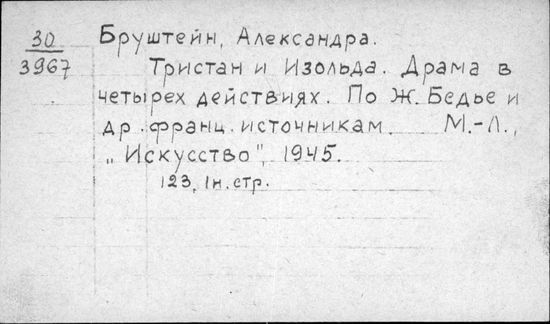 30
3967
Бруштейн, Александра.
Тристан и Изольда. Драма в
четырех действиях. По Ж. Бедье и
др. франц. источникам. М.-Л.,
„Искусство", 1945.
123, 1н. стр.